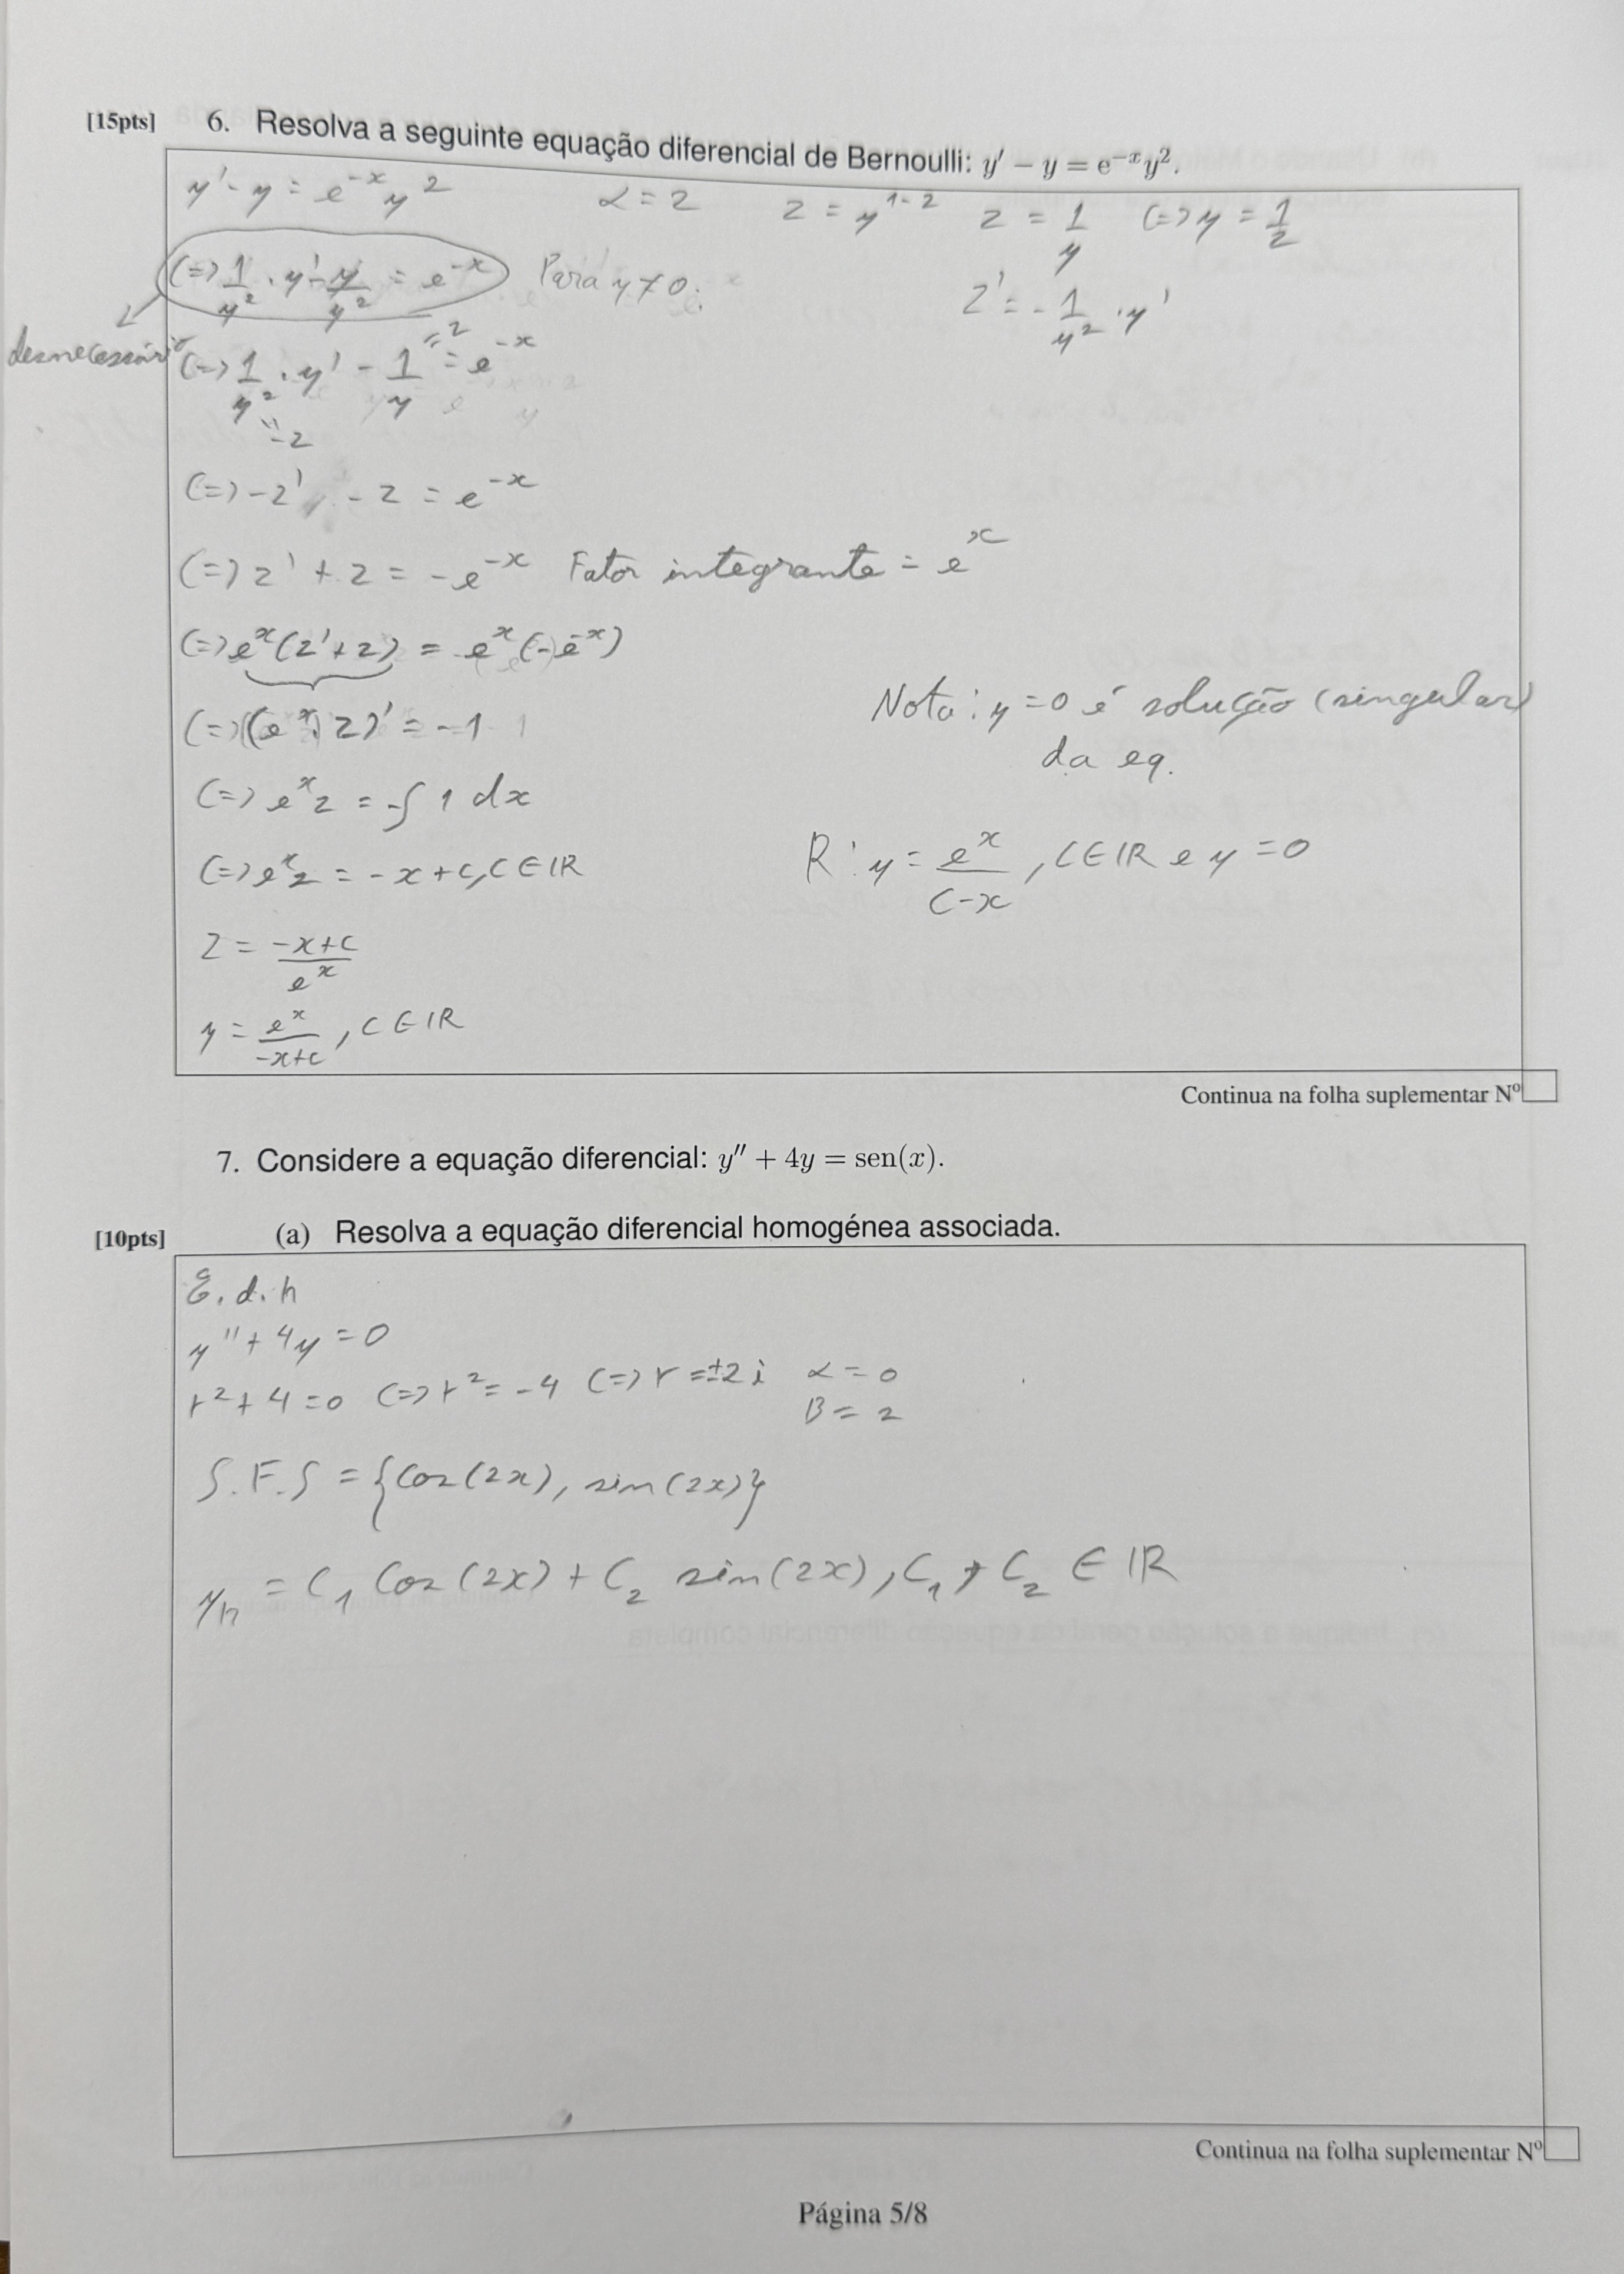 [15pts] 6. Resolva a seguinte equação diferencial de Bernoulli: y′ − y = e⁻ˣy².
y' - y = e⁻ˣ y²   α = 2   z = y¹⁻²   z = 1/y (=) y = 1/z
(=) 1/y² · y' - y/y² = e⁻ˣ   Para y ≠ 0:   z' = - 1/y² · y'
desnecessário
(=) 1/y² · y' - 1/y = e⁻ˣ
= z
= -z
(=) -z' - z = e⁻ˣ
(=) z' + z = -e⁻ˣ   Fator integrante = eˣ
(=) eˣ(z' + z) = eˣ(-e⁻ˣ)
(=) (eˣ · z)' = -1
(=) eˣ z = -∫ 1 dx
(=) eˣ z = -x + c, C ∈ IR
z = (-x+c)/eˣ
y = eˣ/(-x+c), C ∈ IR
Nota: y = 0 é solução (singular)
da eq.
R: y = eˣ/(C-x), C ∈ IR e y = 0
Continua na folha suplementar Nº
7. Considere a equação diferencial: y″ + 4y = sen(x).
[10pts] (a) Resolva a equação diferencial homogénea associada.
E.d.h
y'' + 4y = 0
r² + 4 = 0 (=) r² = -4 (=) r = ±2i   α = 0
B = 2
S.F.S = {cos(2x), sin(2x)}
yh = C₁ cos(2x) + C₂ sin(2x), C₁, C₂ ∈ IR
Continua na folha suplementar Nº
Página 5/8